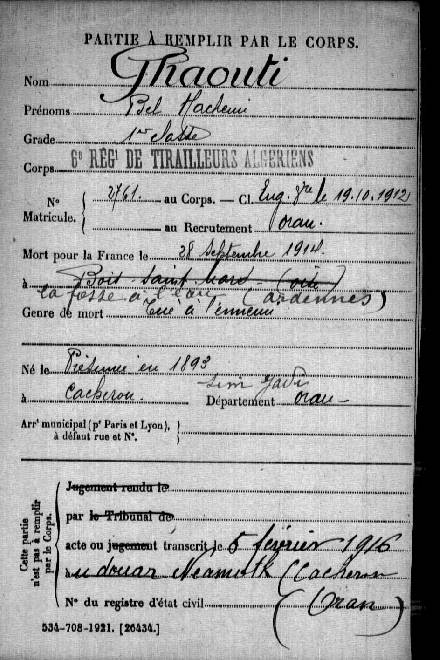 PARTIE À REMPLIR PAR LE CORPS.
Nom Ghaouti
Prénoms Bel Hachemi
Grade 1re classe
Corps 6e RÉGt DE TIRAILLEURS ALGERIENS
N° Matricule. 2761 au Corps. — Cl. Eng. Vre le 19.10.1912
au Recrutement Oran
Mort pour la France le 28 Septembre 1914
à Bois Saint Mard (Oise)
la fosse à l'eau (Ardennes)
Genre de mort Tué à l'ennemi
Né le Présumé en 1893
à Cacherou Département Oran
Arrt municipal (pr Paris et Lyon),
à défaut rue et N°.
Cette partie n'est pas à remplir par le Corps.
Jugement rendu le
par le Tribunal de
acte ou jugement transcrit le 5 février 1916
à u douar (Cacherou
N° du registre d'état civil (Oran)
534-708-1921. [26434.]